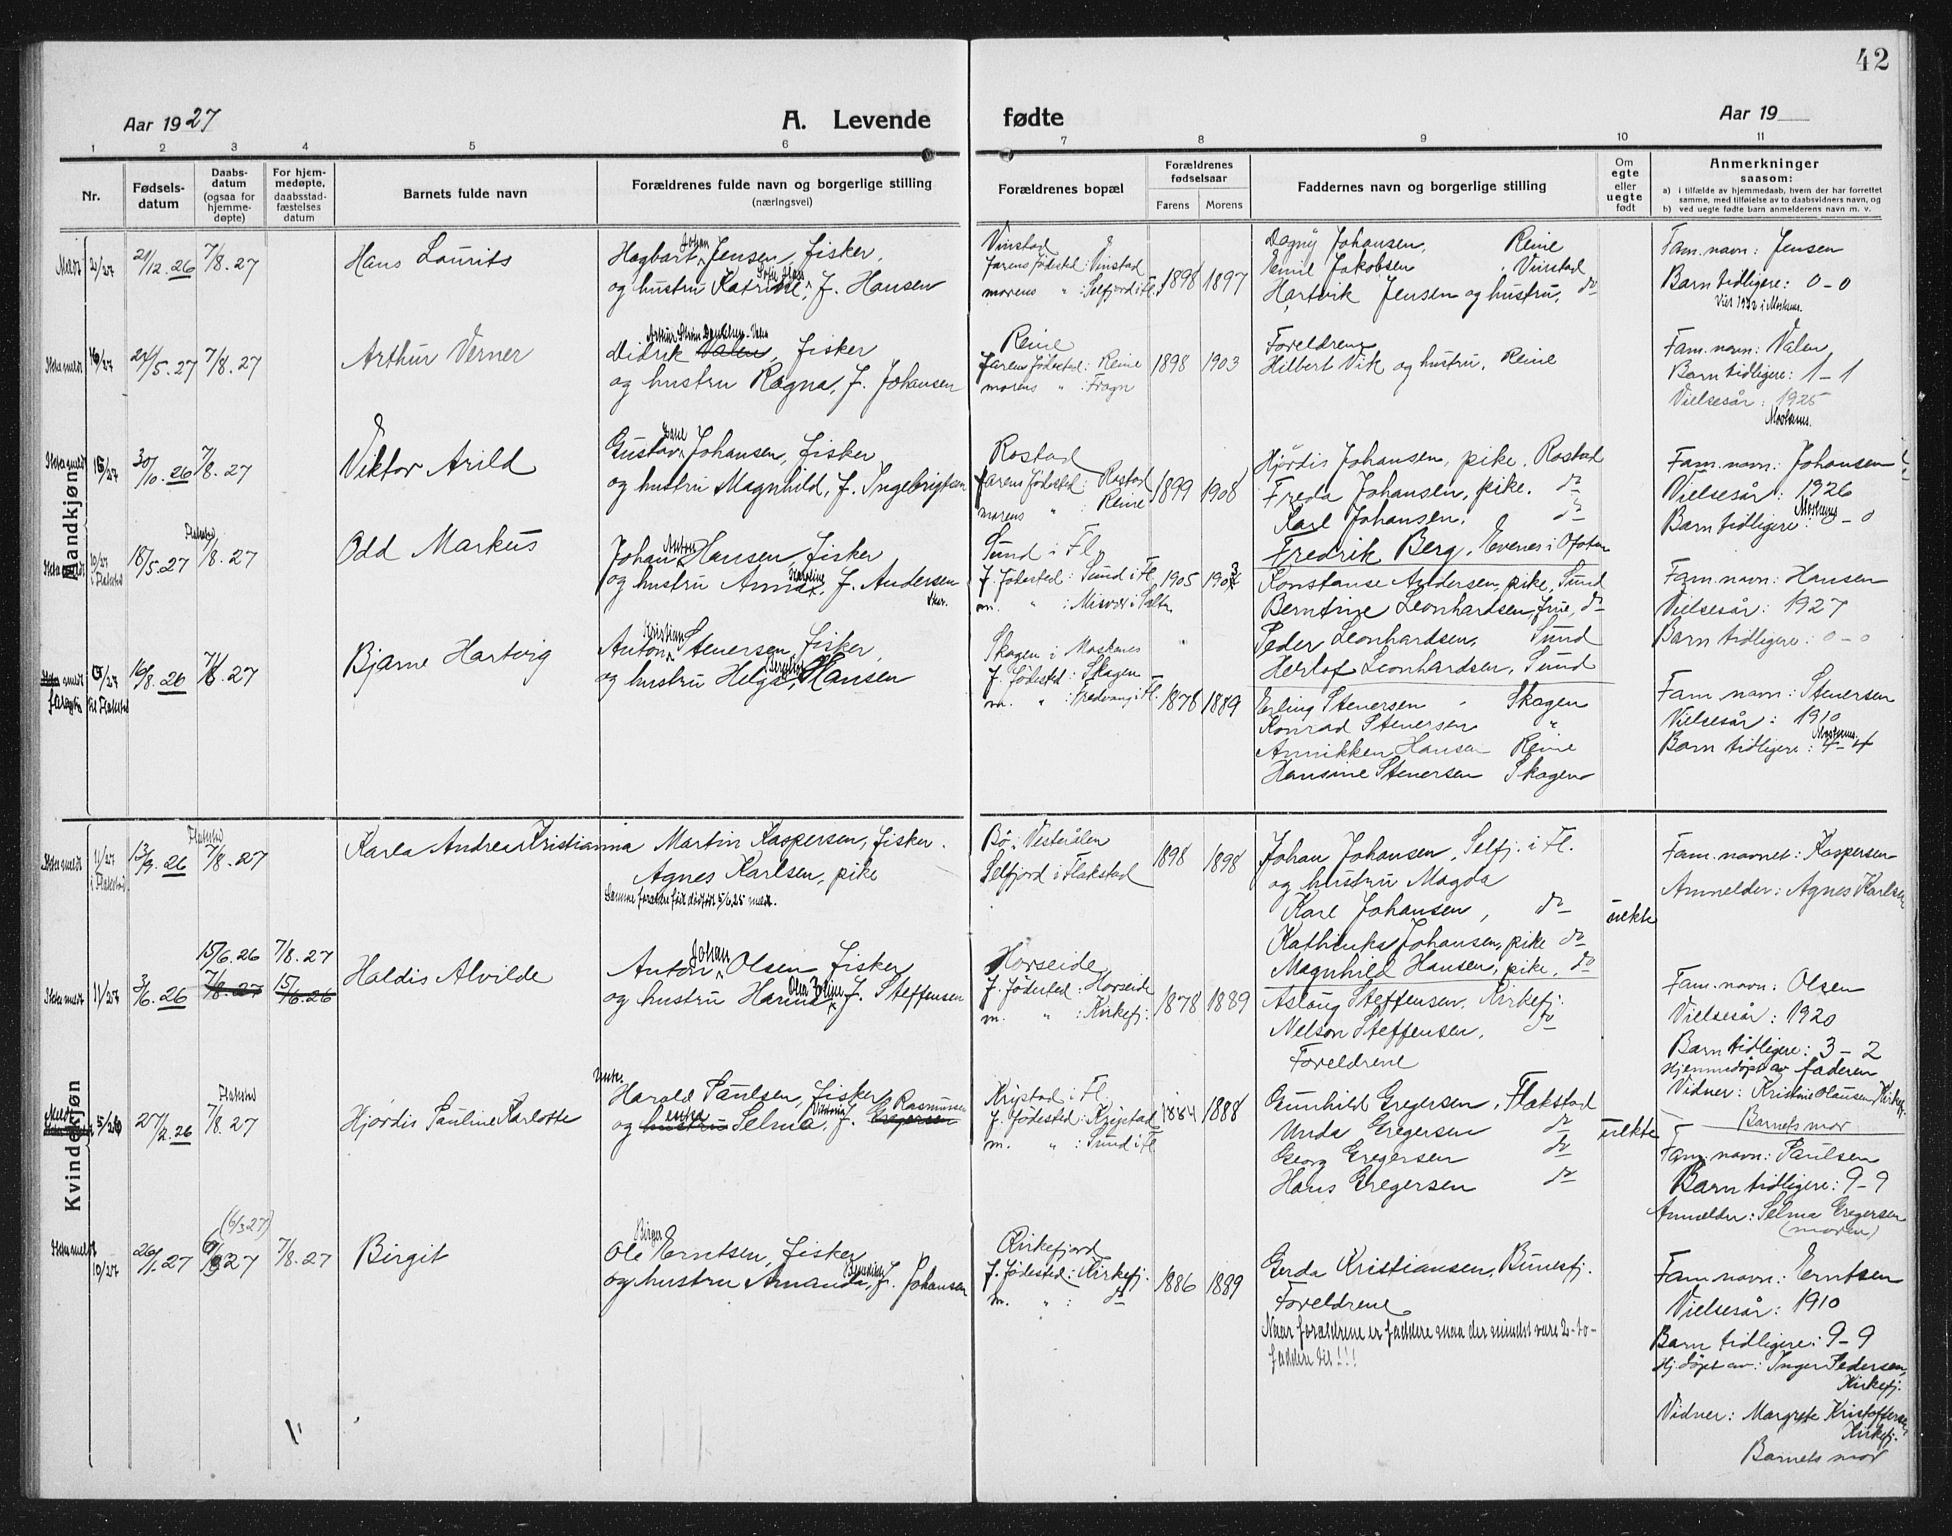 42
Aar 1927
A. Levende
fødte
Aar 19
1 2 3 4 5 6 7 8 9 10 11
Nr.
Fødsels-
datum
Daabs-
datum
(ogsaa for
hjemme-
døpte)
For hjem-
medøpte,
daabsstad-
fæstelses
datum
Barnets fulde navn
Forældrenes fulde navn og borgerlige stilling
(næringsvei)
Forældrenes bopæl
Forældrenes
fødselsaar
Farens Morens
Faddernes navn og borgerlige stilling
Om
egte
eller
uegte
født
Anmerkninger
saasom:
a) i tilfælde av hjemmedaab, hvem der har forrettet
samme, med tilføielse av to daabsvidners navn, og
b) ved uegte fødte barn anmelderens navn m. v.
Mandkjøn
21/12.26 7/8.27
Hans Laurits
Johan
Hagbart Jensen, fisker,
og hustru Katrine, f. Hansen
Vinstad
farens fødested: Vinstad
morens " : Selfjord i Fl.
1898 1897
Dagny Johansen, Reine
Emil Jakobsen, Vinstad
Hartvik Jensen og hustru, do
Fam. navn: Jensen
Barn tidligere: 0-0
Viet 1922 i Moskenes.
7/8.27
Arthur Verner
Didrik Valen, fisker
og hustru Ragna, f. Johansen
Reine
farens fødested: Reine
morens " : Fragn
1898 1903
Foreldrene
Hilbert Vik og hustru, Reine
Fam. navn: Valen
Barn tidligere: 1-1
Vielsesår: 1925
Moskenes.
30/10.26 7/8.27
Viktor Arild
Gustav Johansen, fisker
og hustru Magnhild, f. Ingebrigtsen
Rostad
farens fødested: Rostad
morens " : Reine
1899 1908
Hjørdis Johansen, pike. Rostad
Freda Johansen, pike. do
Karl Johansen. do
Fredrik Berg. Evenes i Ofoten
Fam. navn: Johansen
Vielsesår: 1926
Moskenes
Barn tidligere: 0-0
10/27
i Flakstad
18/5.27
Flakstad
7/8.27
Odd Markus
Anton
Johan Hansen, fisker
og hustru Anna, f. Andersen
Sund i Fl.
f. fødested: Sund i Fl.
m. " : Misvær i Salten
1905
Konstanse Andersen, pike, Sund
Berntine Leonhardsen, frue, do
Peder Leonhardsen, Sund
Herlof Leonhardsen, Sund
Fam. navn: Hansen
Vielsesår: 1927
Barn tidligere: 0-0
Bjarne Hartvig
Kristian
Anton Stenersen, fisker,
Bergitte
og hustru Helga, Hansen
Skagen i Moskenes
f. fødested: Skagen
m. " : Fredvang i Fl.
1878 1889
Erling Stenersen Skagen
Konrad Stenersen "
Annikken Hansen Reine
Hansine Stenersen Skagen
Fam. navn: Stenersen
Vielsesår: 1910
Moskenes.
Barn tidligere: 4-4
Kvindekjøn
11/27
i Flakstad
13/9.26
Flakstad
7/8.27
Karla Andrea Kristianna
Martin Kaspersen, fisker.
Agnes Karlsen, pike
Bø i Vesterålen
Selfjord i Flakstad
1898 1898
Johan Johansen, Selfj. i Fl.
og hustru Magda
Karl Johansen, do
Kathinka Johansen, pike do
Magnhild Hansen, pike, do
uekte
Fam. navnet: Kaspersen
Anmelder: Agnes Karlsen
11/27
3/6.26
15/6.26 7/8.27
7/8.27 15/6.26
Haldis Alvilde
Johan
Anton Olsen fisker
og hustru Hanna f. Steffensen
Horseide
f. fødested: Horseide
m. " : Kirkefj.
1878 1889
Aslaug Steffensen. Kirkefj.
Nelson Steffensen. do
Foreldrene
Fam. navn: Olsen
Vielsesår: 1920
Barn tidligere: 3-2
Hjemmedøpt av faderen
Vidner: Kristine Olausen Kirkefj.
Barnets mor
27/2.26
Flakstad
7/8.27
Hjørdis Pauline Karlotte
Harald Paulsen, fisker
og hustru Selma, f. Gregersen
Rasmussen
enke
Krystad i Fl.
f. fødested: Krystad
m. " : Sund i Fl
1884 1888
Gunhild Gregersen, Flakstad
Unda Gregersen do
Georg Gregersen do
Hans Gregersen do
uekte
Fam. navn: Paulsen
Barn tidligere: 9-9
Anmelder: Selma Gregersen
(moren)
10/27
26/1.27
(6/3 27)
7/8.27
Birgit
Birger
Ole Erntsen, fisker
og hustru Amanda, f. Johansen
Kirkefjord
f. fødested: Kirkefj.
m. " : do
1886 1889
Gerda Kristiansen, Bunesfj.
Foreldrene
Naar forældrene er faddere maa der mindst være 2-to-
faddere til!!!
Fam. navn: Erntsen
Vielsesår: 1910
Barn tidligere: 9-9
Hj. døpt av: Inger Pedersen,
Kirkefj.
Vidner: Margrete Kristoffersen,
Kirkefj.
Barnets mor